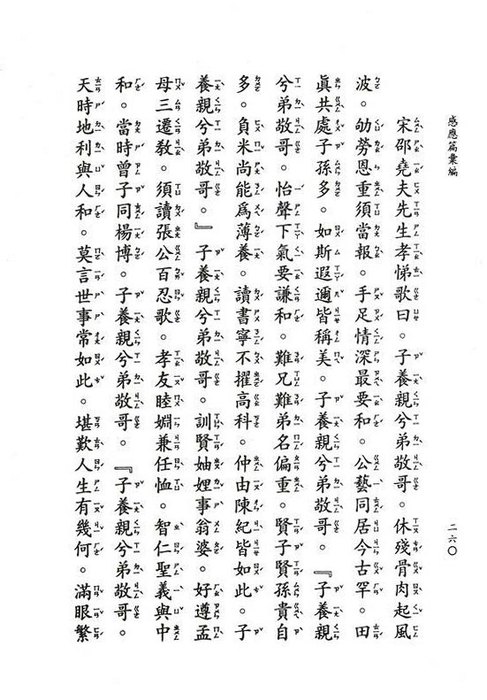 感應篇彙編
宋邵堯夫先生孝悌歌曰。子養親兮弟敬哥。休殘骨肉起風
波。劬勞恩重須當報。手足情深最要和。公藝同居今古罕。田
眞共處子孫多。如斯遐邇皆稱美。子養親兮弟敬哥。『子養親
兮弟敬哥。怡聲下氣要謙和。難兄難弟名偏重。賢子賢孫貴自
多。負米尚能爲薄養。讀書寧不擢高科。仲由陳紀皆如此。子
養親兮弟敬哥。』子養親兮弟敬哥。訓賢妯娌事翁婆。好遵孟
母三遷教。須讀張公百忍歌。孝友睦婣兼任恤。智仁聖義與中
和。當時曾子同楊博。子養親兮弟敬哥。『子養親兮弟敬哥。
天時地利與人和。莫言世事常如此。堪歎人生有幾何。滿眼繁
二六〇